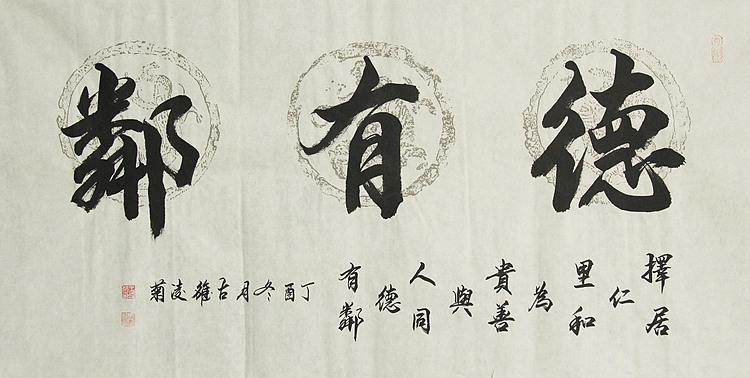 德有鄰
擇居
仁
里和
為
貴善
與
人同
德
有鄰
丁酉冬月古雒凌菊